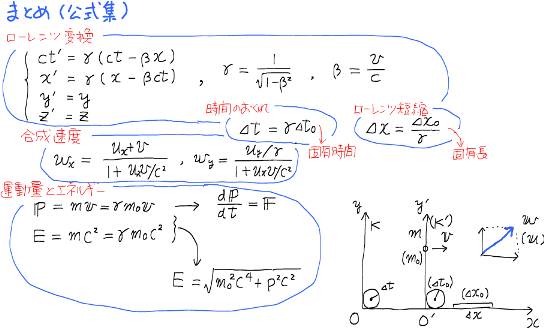 まとめ(公式集)
ローレンツ変換
ct' = γ(ct − βx)
x' = γ(x − βct) , γ = 1/√(1−β²) , β = v/c
y' = y
z' = z
時間のおくれ
Δt = γΔt₀
固有時間
ローレンツ短縮
Δx = Δx₀/γ
固有長
合成速度
wₓ = (uₓ+v)/(1+uₓv/c²) , w_y = (u_y/γ)/(1+uₓv/c²)
運動量とエネルギー
ℙ = mv = γm₀v → dℙ/dt = 𝔽
E = mc² = γm₀c²
E = √(m₀²c⁴ + p²c²)
y y'
K (K')
m v
(m₀)
w
(u)
Δt (Δt₀) (Δx₀)
O O' Δx x